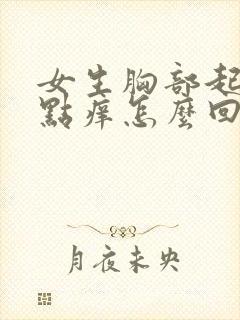 女生胸部起
點痒怎麼回
月夜未央